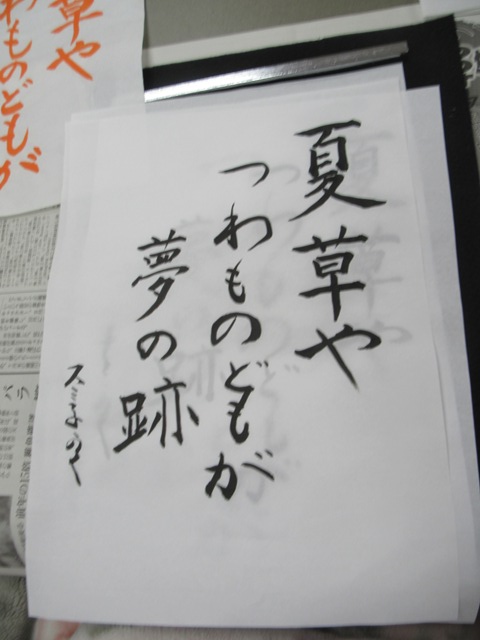 夏草や
つわものどもが
夢の跡
草や
わものどもが